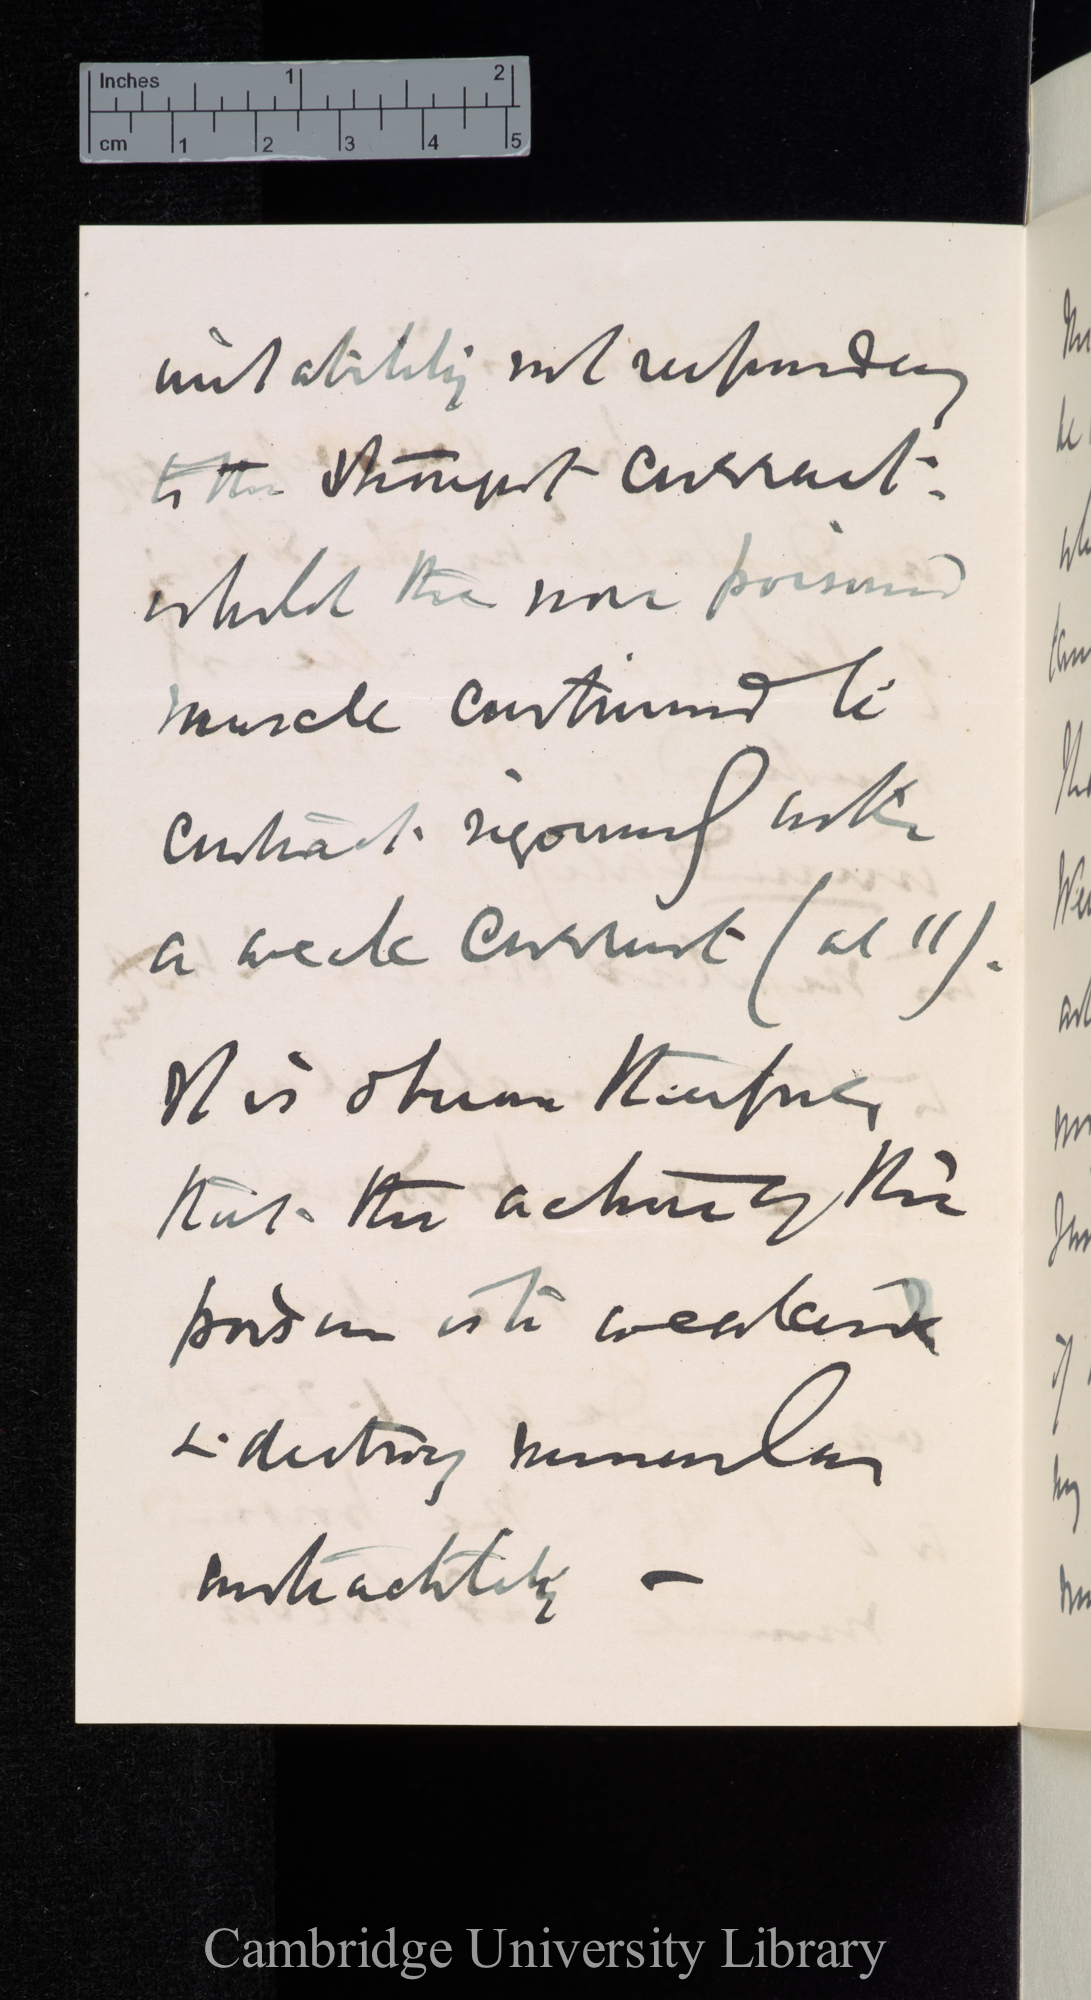 Inches 1 2
cm 1 2 3 4 5
irritability not responding
to the strongest current.
whilst the non poisoned
muscle continued to
contract vigorously with
a weak current (at 11).
It is obvious therefore,
that the action of this
poison is to weaken
& destroy muscular
contractility —
Cambridge University Library